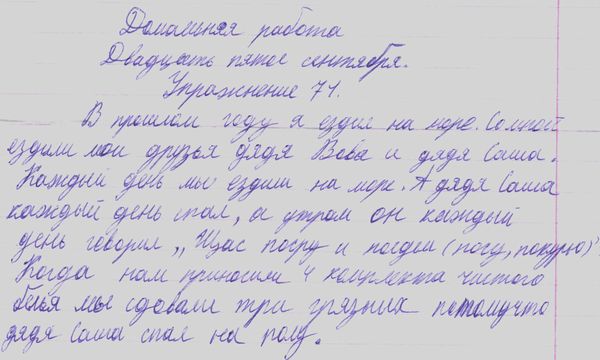 Домашняя работа
Двадцать пятое сентября.
Упражнение 71.
В прошлом году я ездил на море. Со мной
ездили мои друзья дядя Вова и дядя Саша.
Каждый день мы ездили на море. А дядя Саша
каждый день спал, а утром он каждый
день говорил „Щас посру и поедем (поем, покурю)"
Когда нам приносили 4 комплекта чистого
белья мы сдовали три грязних потомучто
дядя Саша спал на полу.